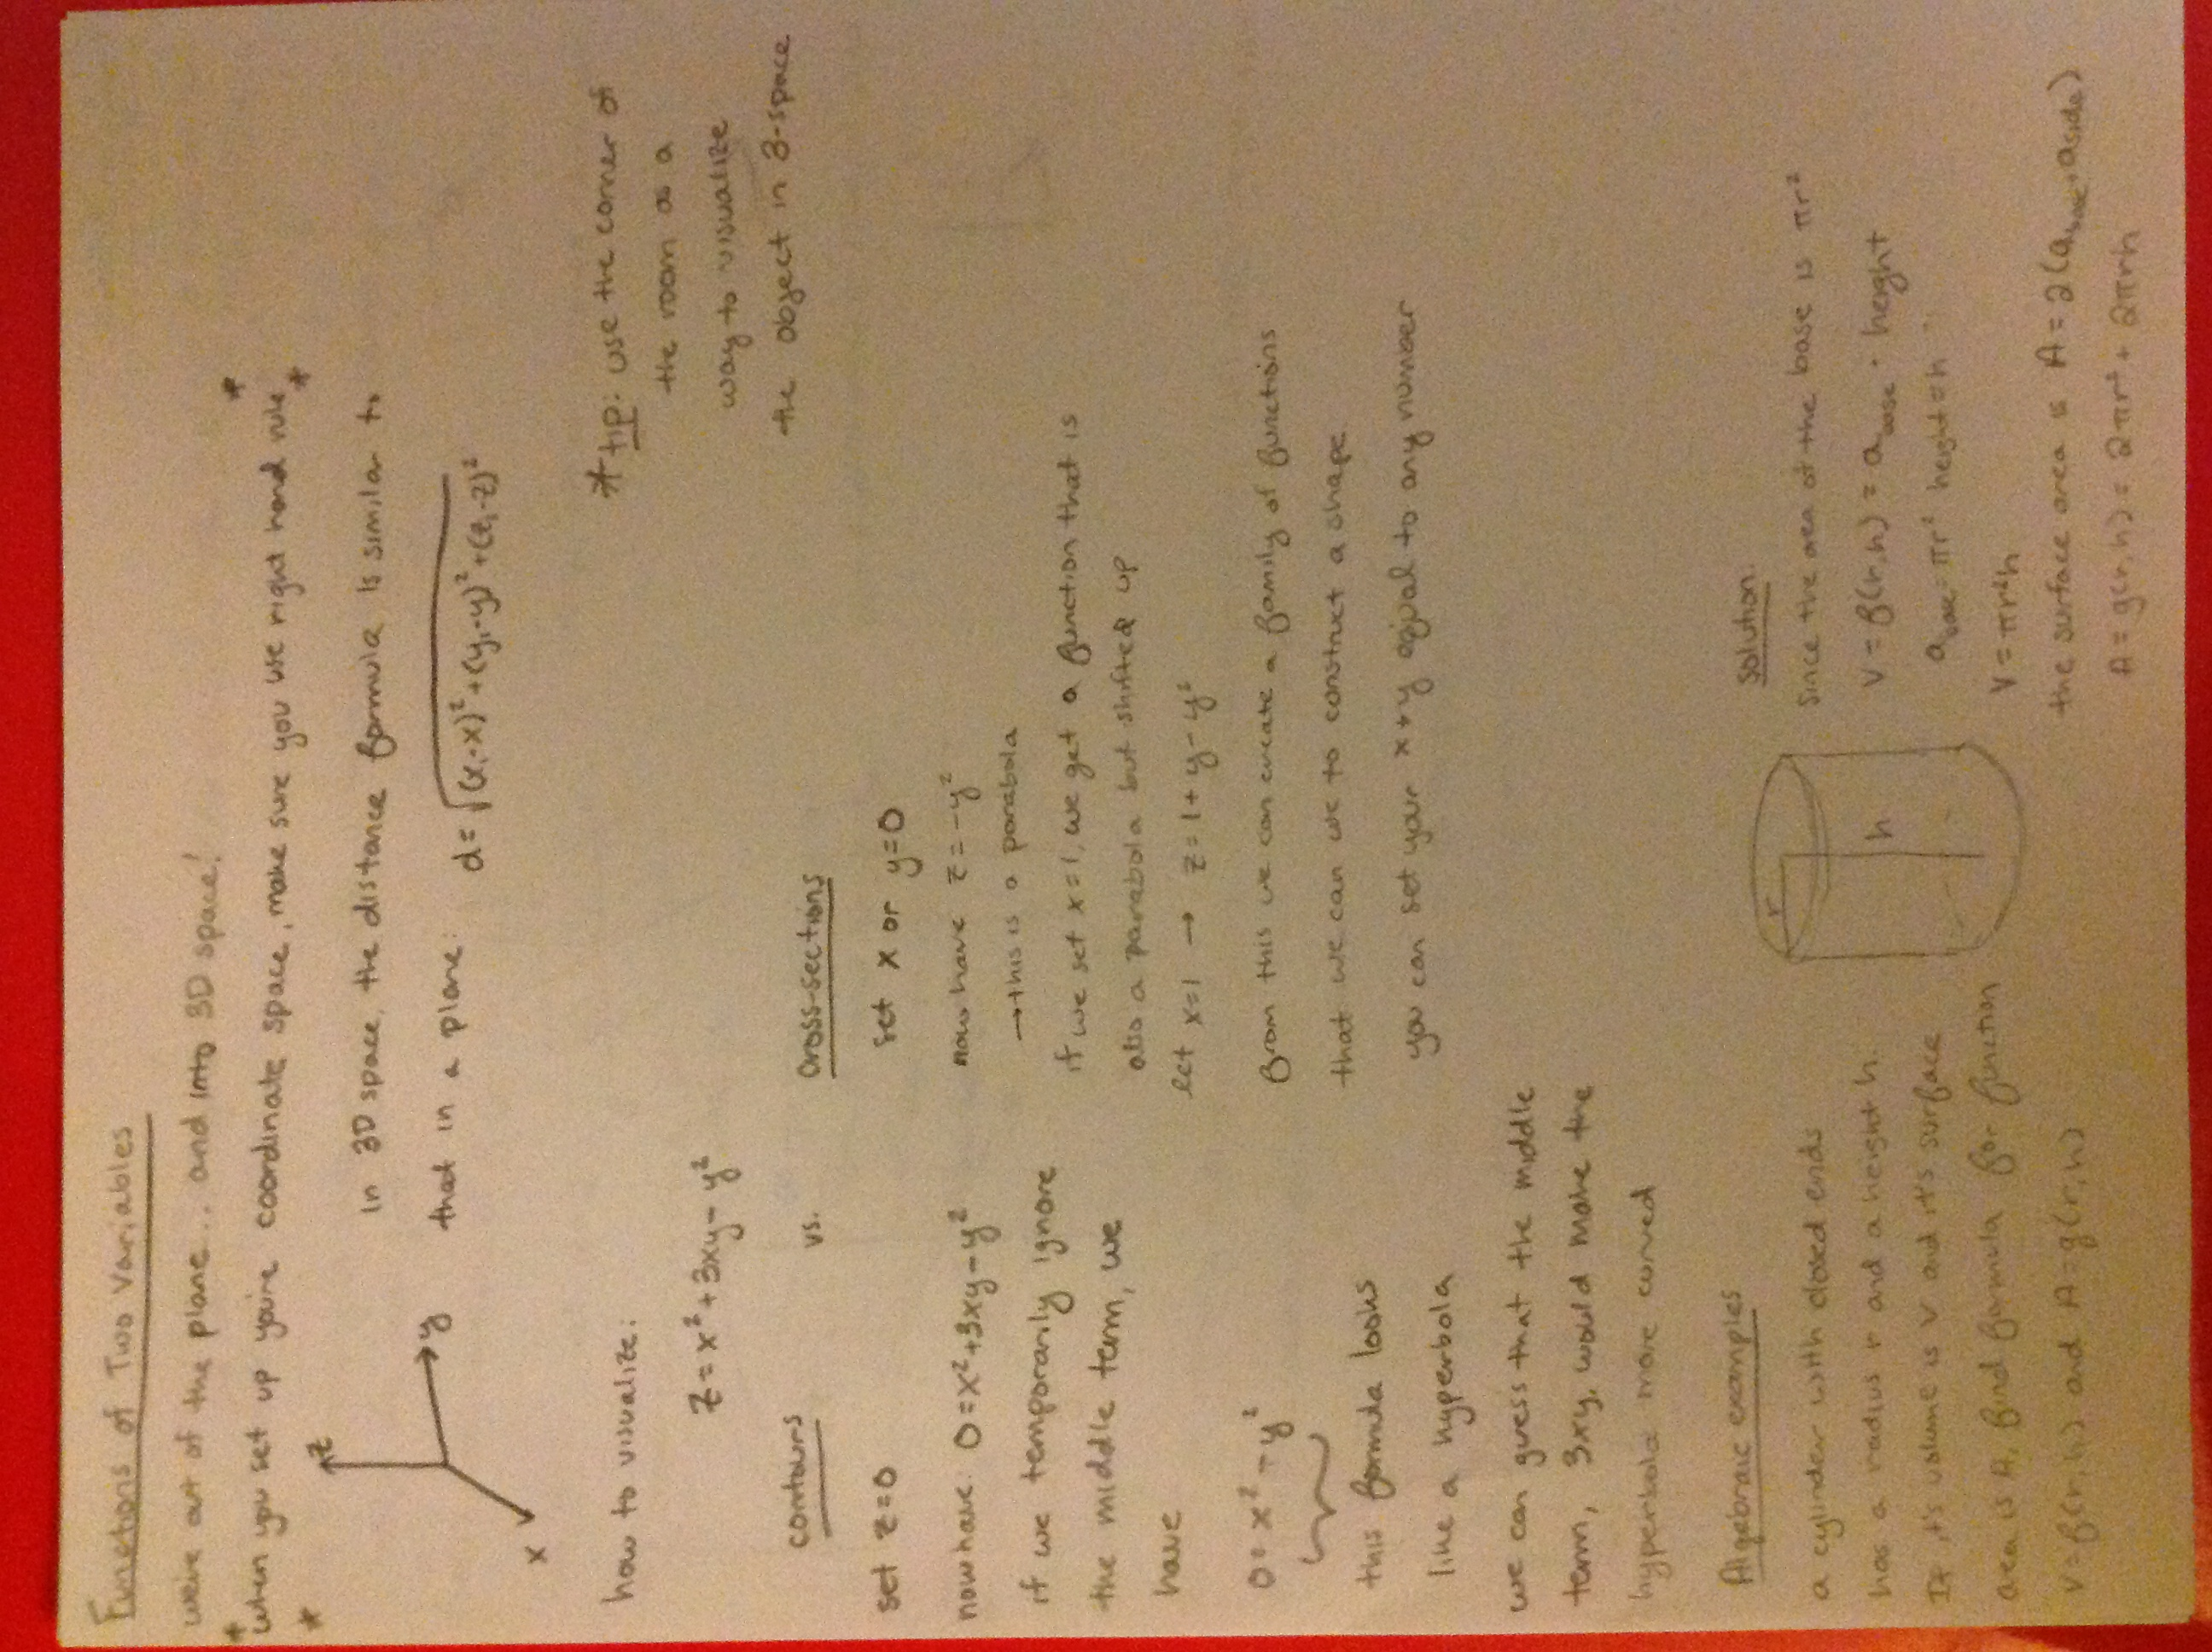 Functions of Two Variables
we're out of the plane... and into 3D space!
* when you set up you're coordinate space, make sure you use right hand rule *
* *
z
y
x
in 3D space, the distance formula is similar to
that in a plane: d = √(x₁-x)² + (y₁-y)² + (z₁-z)²
how to visualize:
* tip: use the corner of
the room as a
way to visualize
the object in 3-space
z = x² + 3xy - y²
contours vs. cross-sections
set z=0
now have: 0 = x² + 3xy - y²
if we temporarily ignore
the middle term, we
have
0 = x² - y²
this formula looks
like a hyperbola
we can guess that the middle
term, 3xy, would make the
hyperbola more curved
set x or y=0
now have z = -y²
→ this is a parabola
if we set x=1, we get a function that is
also a parabola but shifted up
let x=1 → z = 1 + y - y²
from this we can create a family of functions
that we can we to construct a shape
you can set your x + y equal to any number
Algebraic examples
a cylinder with closed ends
has a radius r and a height h.
If it's volume is V and it's surface
area is A, find formula for function
V = f(r,h) and A = g(r,h)
r
h
solution:
Since the area of the base is πr²
V = f(r,h) = a base · height
a base = πr² height = h
V = πr²h
the surface area is A = 2(a base + a side)
A = g(r,h) = 2πr² + 2πrh